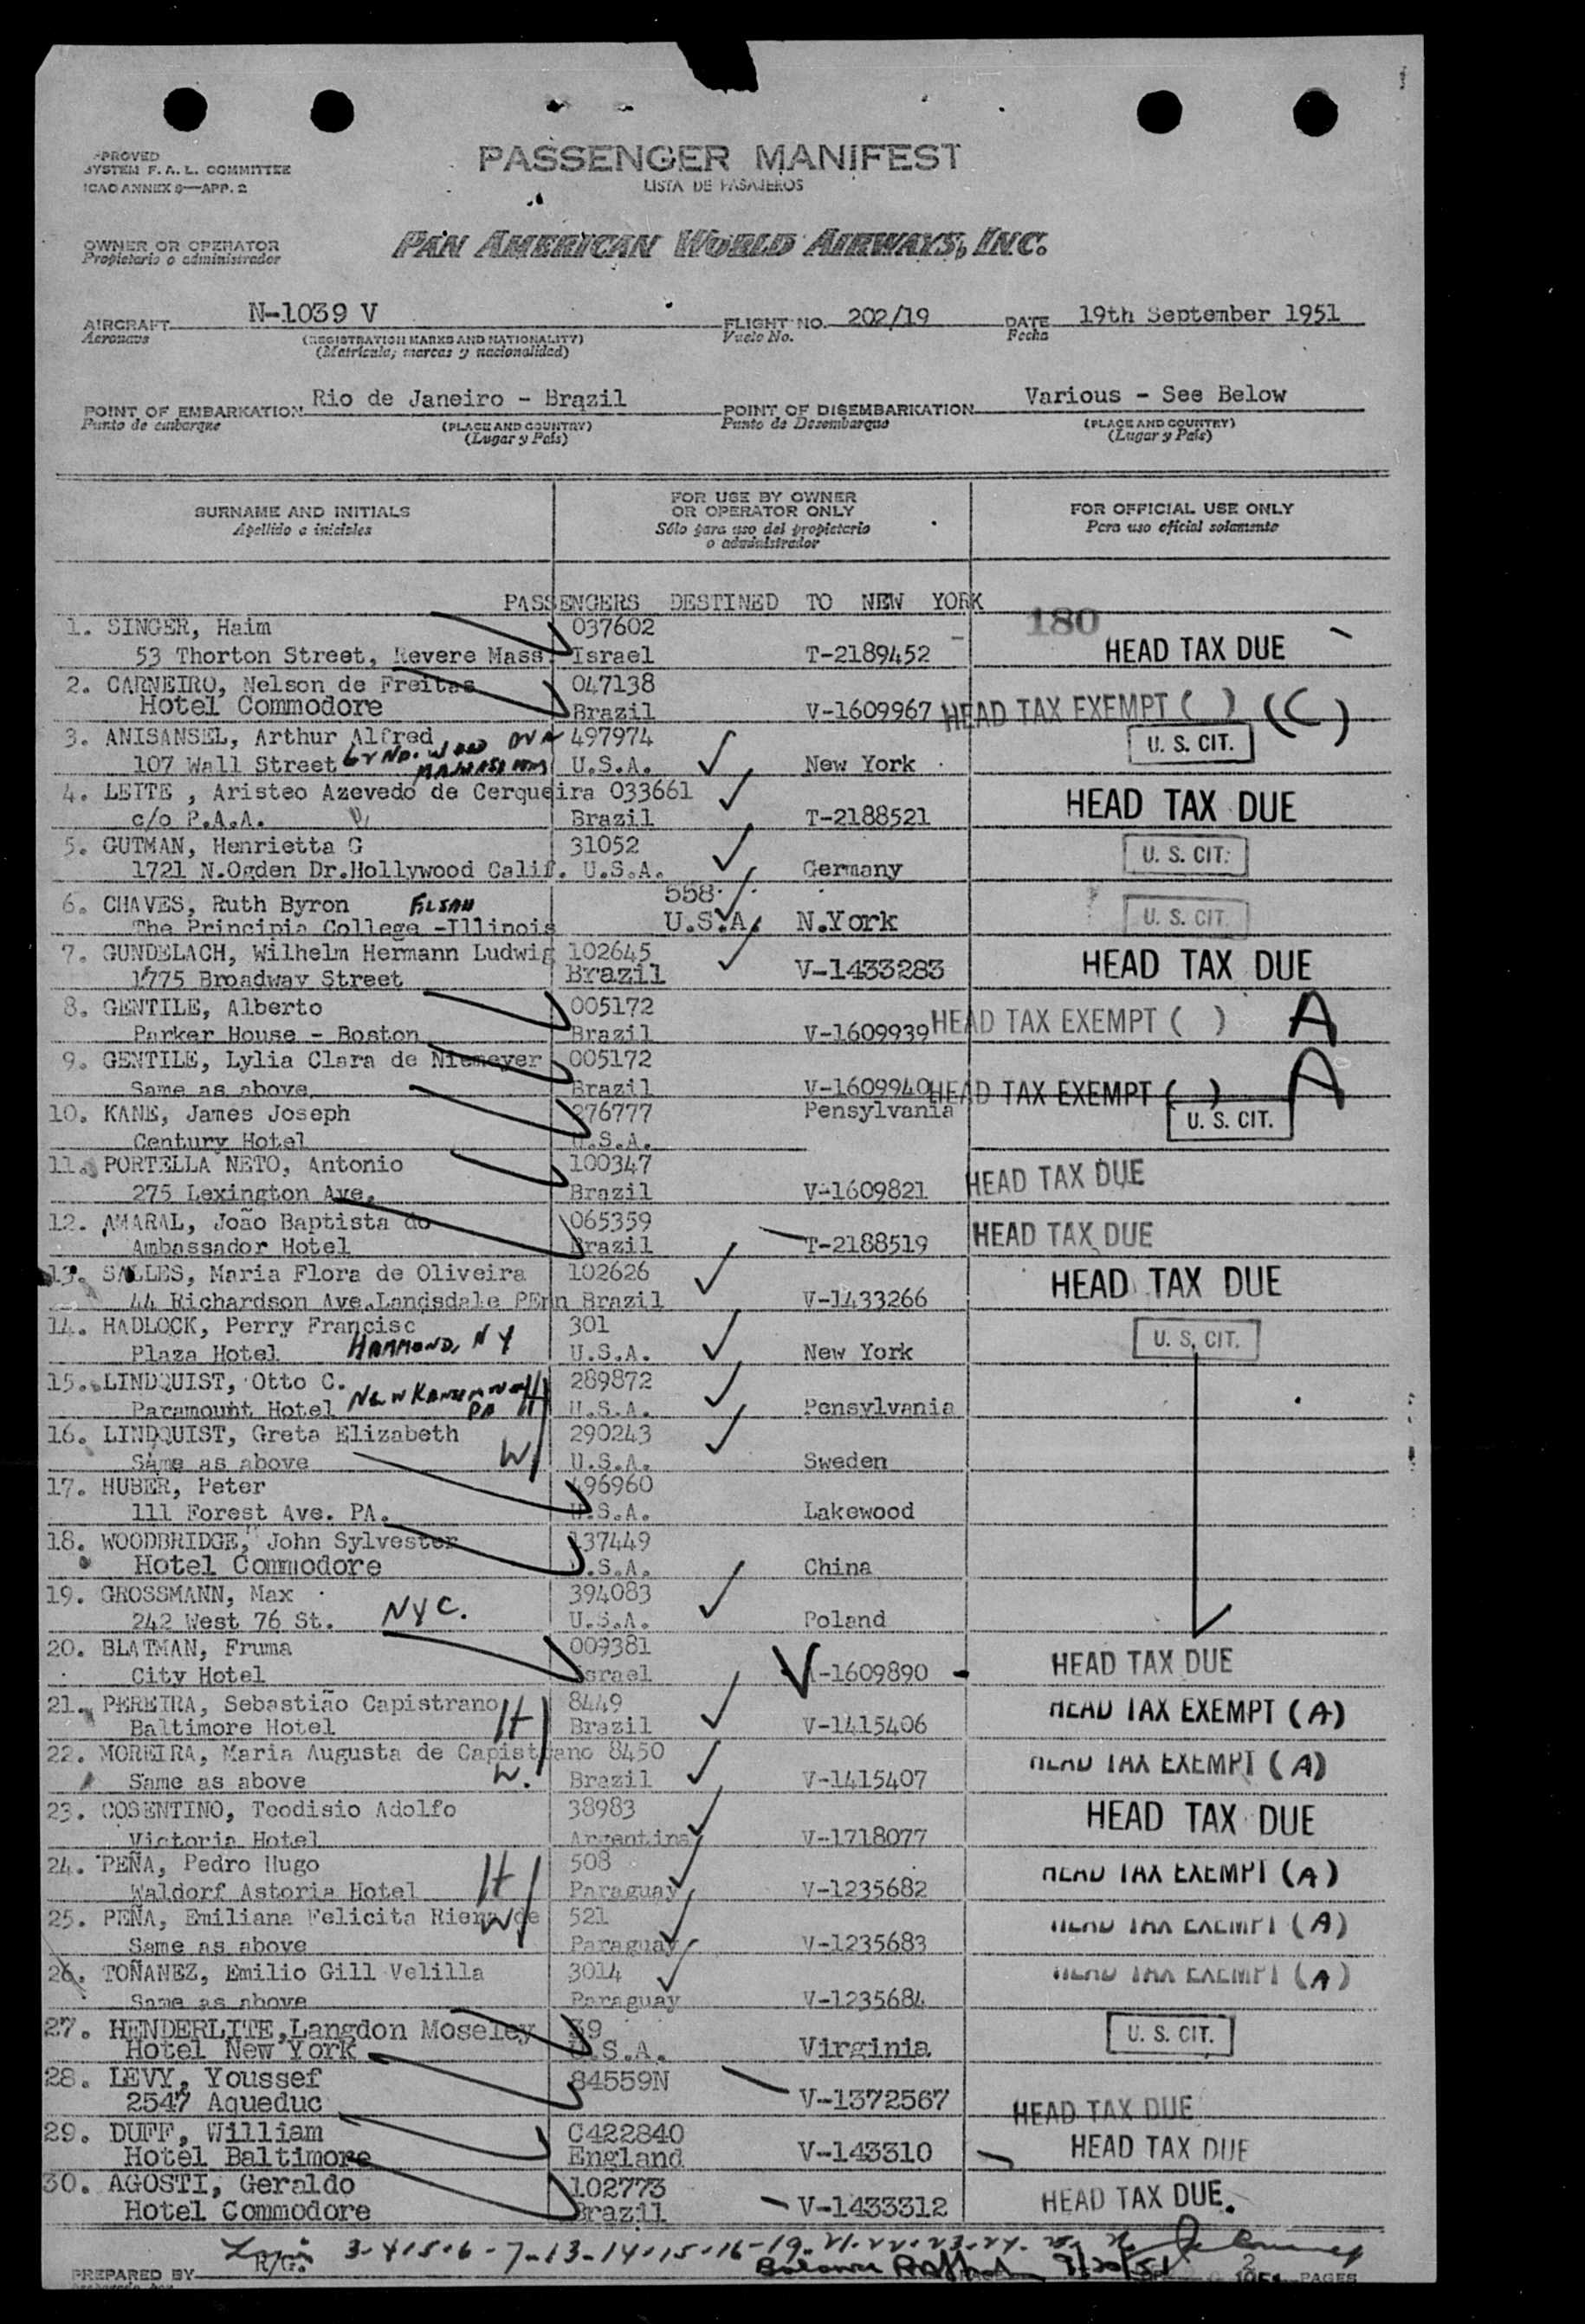 PROVED
SYSTEM F. A. L. COMMITTEE
ICAO ANNEX 9—APP. 2
PASSENGER MANIFEST
LISTA DE PASAJEROS
OWNER OR OPERATOR
Propietario o administrador
PAN AMERICAN WORLD AIRWAYS, INC.
AIRCRAFT N-1039 V FLIGHT NO. 202/19 DATE 19th September 1951
Aeronave (REGISTRATION MARKS AND NATIONALITY) Vuelo No. Fecha
(Matrícula, marcas y nacionalidad)
POINT OF EMBARKATION Rio de Janeiro - Brazil POINT OF DISEMBARKATION Various - See Below
Punto de embarque (PLACE AND COUNTRY) Punto de Desembarque (PLACE AND COUNTRY)
(Lugar y País) (Lugar y País)
SURNAME AND INITIALS FOR USE BY OWNER OR OPERATOR ONLY FOR OFFICIAL USE ONLY
Apellido e iniciales Sólo para uso del propietario o administrador Para uso oficial solamente
PASSENGERS DESTINED TO NEW YORK
180
1. SINGER, Haim 037602
53 Thorton Street, Revere Mass. Israel T-2189452 HEAD TAX DUE
2. CARNEIRO, Nelson de Freitas 047138
Hotel Commodore Brazil V-1609967 HEAD TAX EXEMPT ( ) (C)
3. ANISANSEL, Arthur Alfred 497974 U. S. CIT.
107 Wall Street U.S.A. New York
4. LEITE , Aristeo Azevedo de Cerqueira 033661 HEAD TAX DUE
c/o P.A.A. Brazil T-2188521
5. GUTMAN, Henrietta G 31052 U. S. CIT.
1721 N.Ogden Dr.Hollywood Calif. U.S.A. Germany
6. CHAVES, Ruth Byron ELSAH 558 U. S. CIT.
The Principia College -Illinois U.S.A. N.York
7. GUNDELACH, Wilhelm Hermann Ludwig 102645 HEAD TAX DUE
1775 Broadway Street Brazil V-1433283
8. GENTILE, Alberto 005172
Parker House - Boston Brazil V-1609939 HEAD TAX EXEMPT ( ) A
9. GENTILE, Lylia Clara de Niemeyer 005172
Same as above Brazil V-1609940 HEAD TAX EXEMPT ( ) A
10. KANE, James Joseph 276777 Pensylvania U. S. CIT.
Century Hotel U.S.A.
11. PORTELLA NETO, Antonio 100347
275 Lexington Ave. Brazil V-1609821 HEAD TAX DUE
12. AMARAL, João Baptista do 065359
Ambassador Hotel Brazil T-2188519 HEAD TAX DUE
13. SALLES, Maria Flora de Oliveira 102626 HEAD TAX DUE
44 Richardson Ave.Landsdale PEnn Brazil V-1433266
14. HADLOCK, Perry Francisc 301 U. S. CIT.
Plaza Hotel HAMMOND, NY U.S.A. New York
15. LINDQUIST, Otto C. H 289872
Paramount Hotel PA U.S.A. Pensylvania
16. LINDQUIST, Greta Elizabeth W 290243
Same as above U.S.A. Sweden
17. HUBER, Peter 496960
111 Forest Ave. PA. U.S.A. Lakewood
18. WOODBRIDGE, John Sylvester 137449
Hotel Commodore U.S.A. China
19. GROSSMANN, Max 394083
242 West 76 St. NYC. U.S.A. Poland
20. BLATMAN, Fruma 009381
City Hotel Israel V-1609890 HEAD TAX DUE
21. PEREIRA, Sebastião Capistrano H 8449
Baltimore Hotel Brazil V-1415406 HEAD TAX EXEMPT (A)
22. MOREIRA, Maria Augusta de Capistrano 8450
Same as above W. Brazil V-1415407 HEAD TAX EXEMPT (A)
23. COSENTINO, Teodisio Adolfo 38983 HEAD TAX DUE
Victoria Hotel Argentina V-1718077
24. PEÑA, Pedro Hugo H 508
Waldorf Astoria Hotel Paraguay V-1235682 HEAD TAX EXEMPT (A)
25. PEÑA, Emiliana Felicita Riera de W 521
Same as above Paraguay V-1235683 HEAD TAX EXEMPT (A)
26. TOÑANEZ, Emilio Gill Velilla 3014
Same as above Paraguay V-1235684 HEAD TAX EXEMPT (A)
27. HENDERLITE,Langdon Moseley 39 U. S. CIT.
Hotel New York U.S.A. Virginia
28. LEVY, Youssef 84559N
2547 Aqueduc V-1372567 HEAD TAX DUE
29. DUFF, William C422840
Hotel Baltimore England V-143310 HEAD TAX DUE
30. AGOSTI, Geraldo 102773
Hotel Commodore Brazil V-1433312 HEAD TAX DUE.
3-4-5-6-7-13-14-15-16-19-21-22-23-24-25-26
PREPARED BY R/G. Balance 9/20/51 2 PAGES